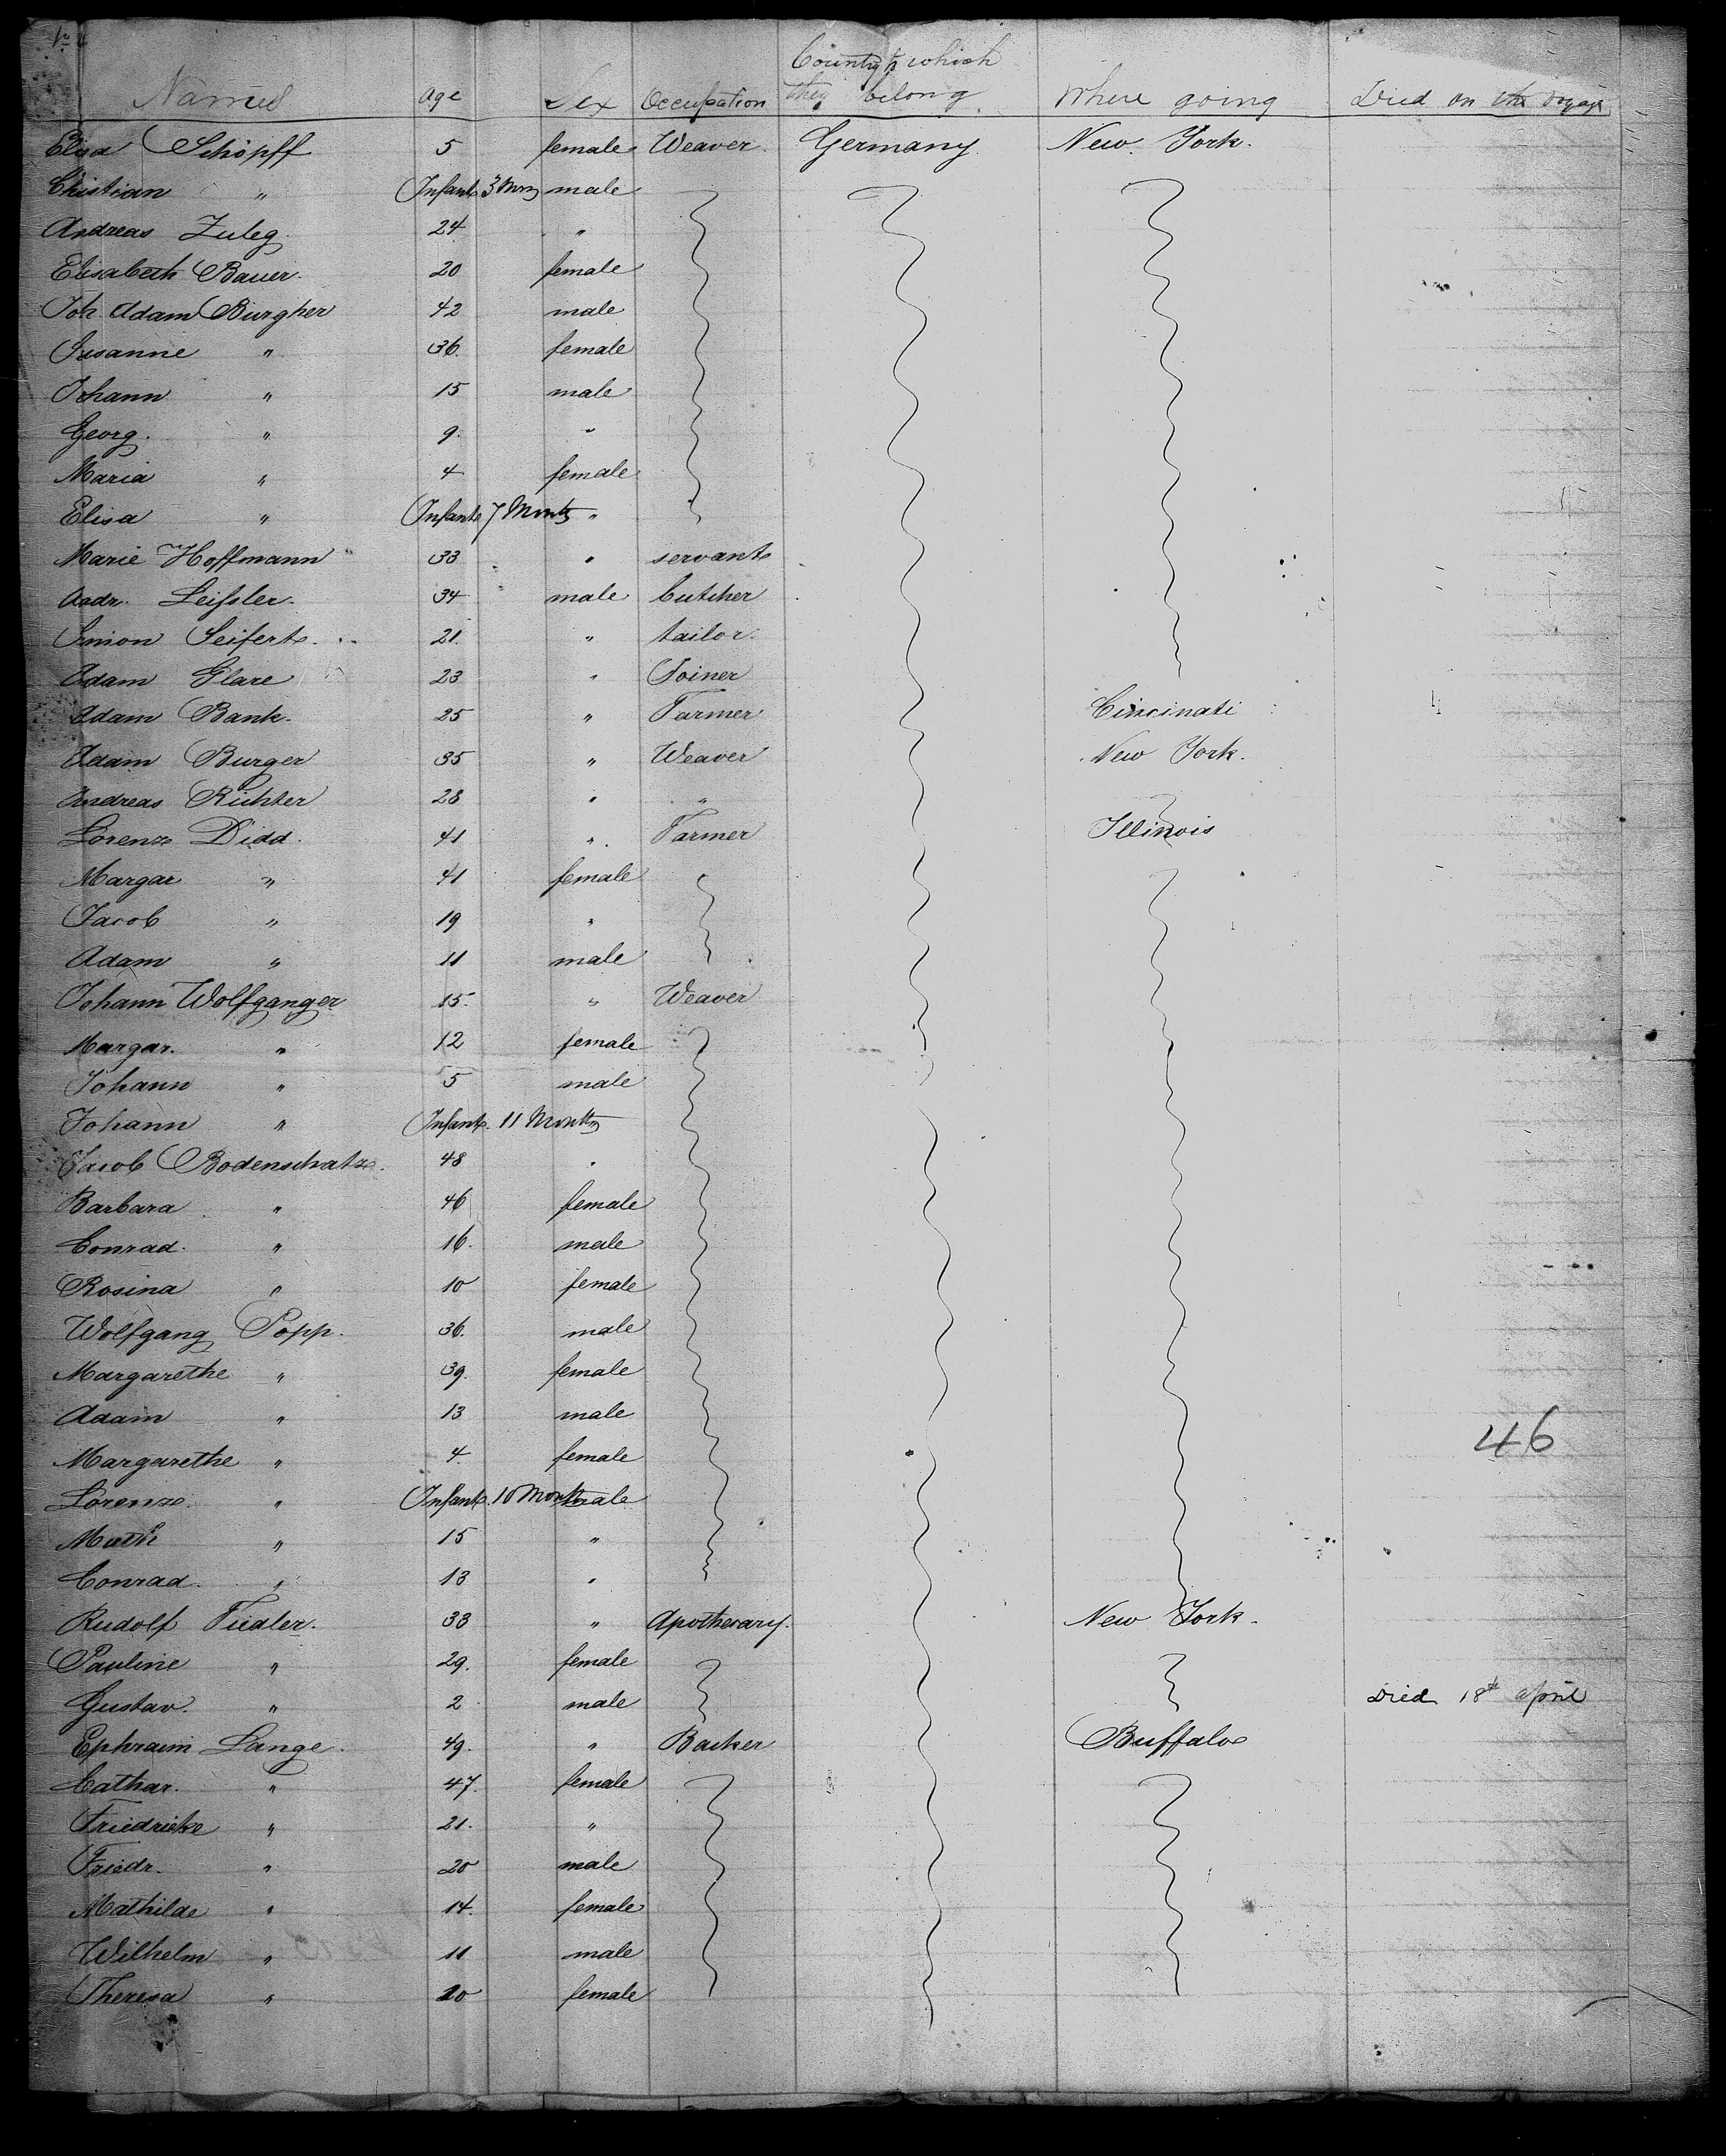 Names Age Sex Occupation Country to which they belong Where going Died on the voyage
Elisa Schöpff 5 female Weaver Germany New York.
Christian " Infant 3 Mons male
Andreas Zuleg 24 "
Elisabeth Bauer. 20 female
Joh Adam Burgher 42 male
Susanne " 36. female
Johann " 15 male
Georg. " 9. "
Maria " 4 female
Elisa " Infant 7 Months "
Marie Hoffmann 33 " servant
Andr. Leifsler. 34 male butcher
Simon Seifert. 21. " tailor.
Adam Glare 23 " Joiner
Adam Bank. 25 " Farmer Cincinati
Adam Burger 35 " Weaver New York.
Andreas Richter 28 " "
Lorenz Didd. 41 " Farmer Illinois
Margar " 41 female
Jacob " 19 "
Adam " 11 male
Johann Wolfganger 15. " Weaver
Margar. " 12 female
Johann " 5 male
Johann " Infant. 11 Months
Jacob Bodenschatz. 48 "
Barbara " 46 female
Conrad. " 16. male
Rosina " 10 female
Wolfgang Popp. 36. male
Margarethe " 39. female
Adam " 13 male
46
Margarethe " 4 female
Lorenz. " Infant. 10 Months male
Math " 15 "
Conrad. " 13 "
Rudolf Fiedler. 33 " Apothecary. New York.
Pauline " 29. female
Gustav. " 2 male Died 18th april
Ephraim Lange. 49. " Backer Buffalo
Cathar. " 47. female
Friedricke " 21. "
Friedr. " 20 male
Mathilde " 14. female
Wilhelm " 11 male
Theresa " 10 female